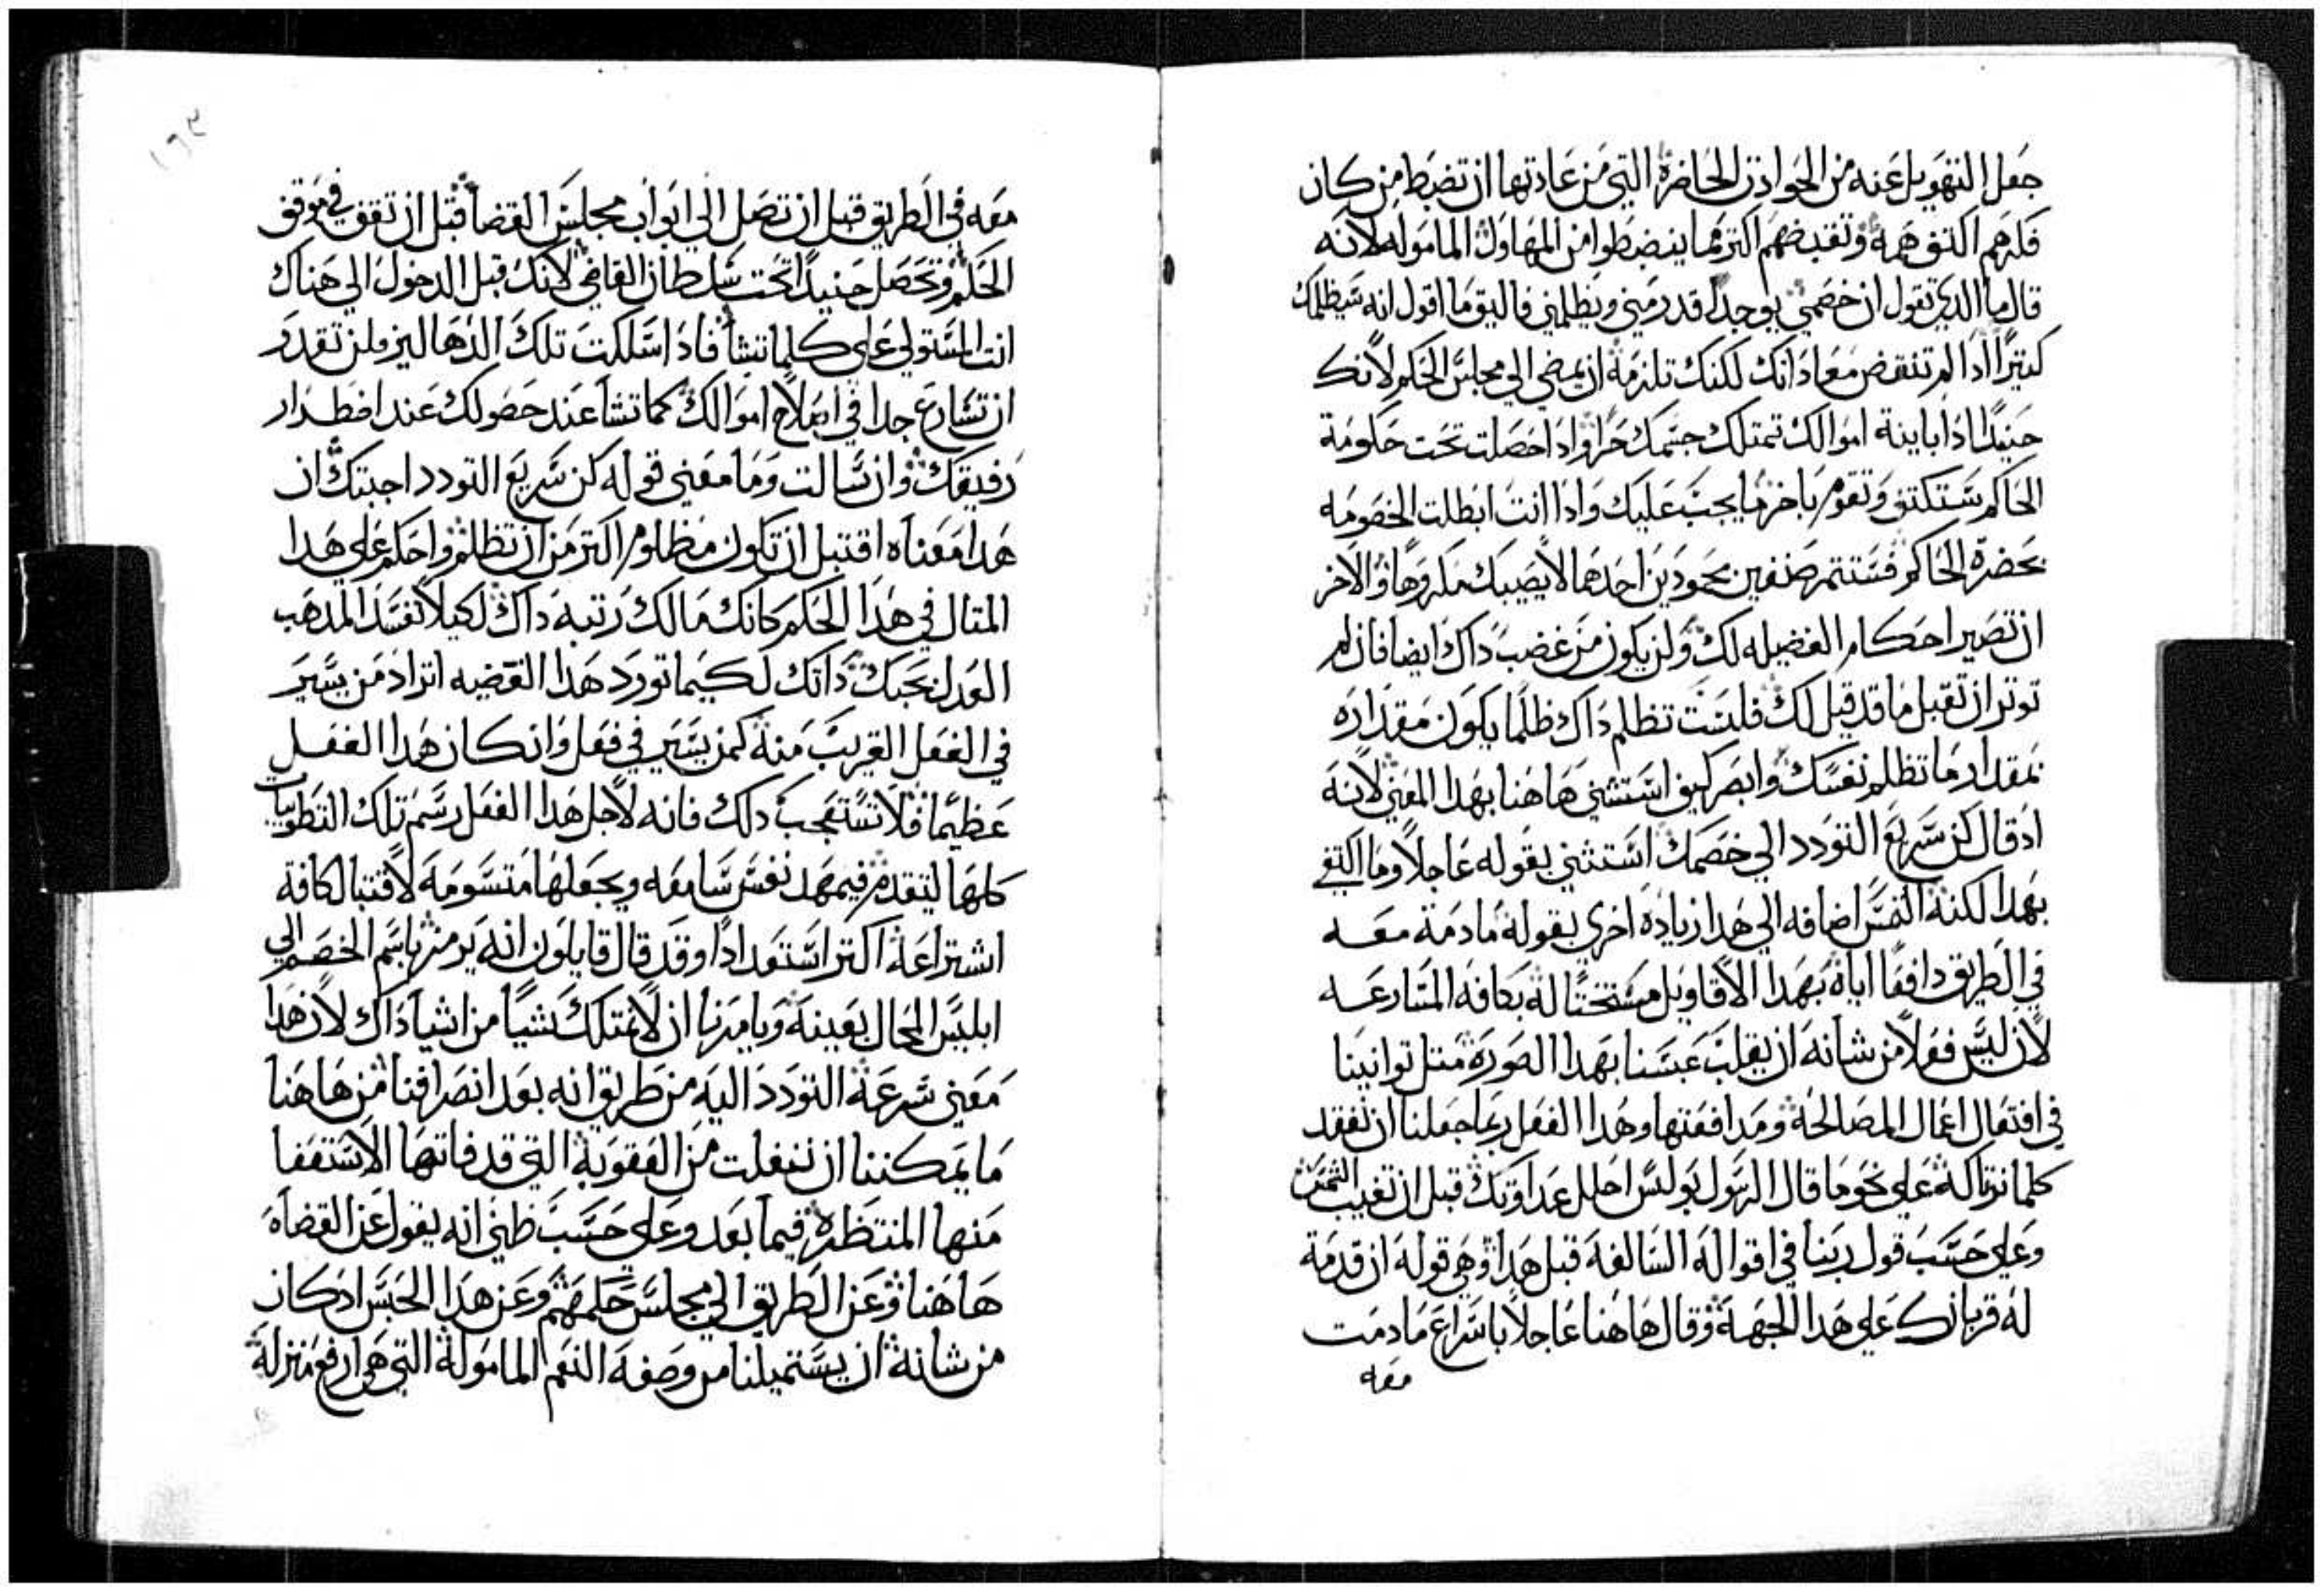 جعل التهويل عنه من الحوادث الحاضرة التي من عادتها ان تضبط من كان
فلزهم اكتف همه وتقبضهم اكتر مما ينضبطوا من المهاول المامولة لانه
قال ما الذي تقول ان خصمي يوجد قد رمني ويظلمني فاليق ما اقول انه سيظلمك
كتيرًا اذا لم تنقض معاداتك لكنك تلزمة ان يمضي الي مجلس الحكم لانك
حنيدًا اذا باينة اموالك تمتلك جسمك حرا واذا حصلت تحت حكومة
الحاكم ستكتف وتقوم باخر ما يجب عليك واذا انت ابطلت الخصومه
بحضرة الحاكم فستتمر صنفين محمودين احدهما لا يصيبك مكروها والاخر
ان تصير احكام الفضيله لك ولن يكون من غضب ذاك ايضا فان لم
توتر ان تقبل ما قد قيل لك فلست تظلم ذاك ظلما يكون مقداره
بمقدار ما تظلم نفسك وابصر كيف استثني هاهنا بهدا المعني لانه
اد قال كن سريع التودد الي خصمك استثني بقوله عاجلاً وما اكتفي
بهدا لكنة التمس اضافه الي هدا زيادة اخري بقولة ما دمة معه
في الطريق دافعًا اياة بهدا الاقاويل مستحتًا لة بكافة المسارعه
لان ليس فعلاً من شانه ان يقلب عيسنا بهدا الصورة متل توانينا
في افتعال اعمال المصالحة ومدافعتها وهدا الفعل ربما جعلنا ان نفقد
كلما نرتاكة علي نحو ما قال الرسول بولس احلل عداوتك قبل ان تغيب الشمس
وعلي حسب قول ربنا في اقواله السالفة قبل هدا وهي قوله ان قدمة
له قربانك علي هدا الجهة وقال هاهنا عاجلاً باسراع ما دمت
معه
معه في الطريق قبل ان تصل الي ابواب مجلس القضا قبل ان تقف في موقف
الحكم وتحصل حنيدًا تحت سلطان القاضي لانك قبل الدخول الي هناك
انت المستولي علي كلما تشا فاذا سلكت تلك الدهاليز فلن تقدر
ان تسارع جدا في اصلاح اموالك كما تشا عند حصولك عند اضطرار
رفيقك وان سالت وما معني قوله كن سريع التودد اجبتك ان
هدا معناه اقتبل ان تكون مظلوم اكتر من ان تظلم واحكم علي هدا
المتال في هدا الحكم كانك مالك رتبه ذاك لكيلا تفسد المدهب
العدل بحبك ذاتك لكيما تورد هدا القضيه اتراد من يسير
في الفعل القريب منة كمن يسير في فعل وان كان هدا الفعل
عظيمًا فلا تستعجب دلك فانه لاجل هدا الفعل رسم تلك التطويبات
كلها لتتقدم فيمهد نفس سامعه ويجعلها متسومة لاقتبال كافة
اشتراعة اكتر استعدادًا وقد قال قايلون انه يرمز باسم الخصم الي
ابليس المحال بعينة ويامرنا ان لا نمتلك شيًا من اشيا ذاك لان هدا
معني سرعة التودد اليه من طريق انه بعد انصرافنا من هاهنا
ما يمكننا ان نغفلت من العقوبة التي قد فاتها الاستعفا
منها المنتظرة فيما بعد وعلي حسب ظني انه يقول عن القضاه
هاهنا وعن الطريق الي مجلس حكمهم وعن هدا الحبس اد كان
من شانة ان يستميلنا من وصفه النعم المامولة التي هي ارفع منزلة